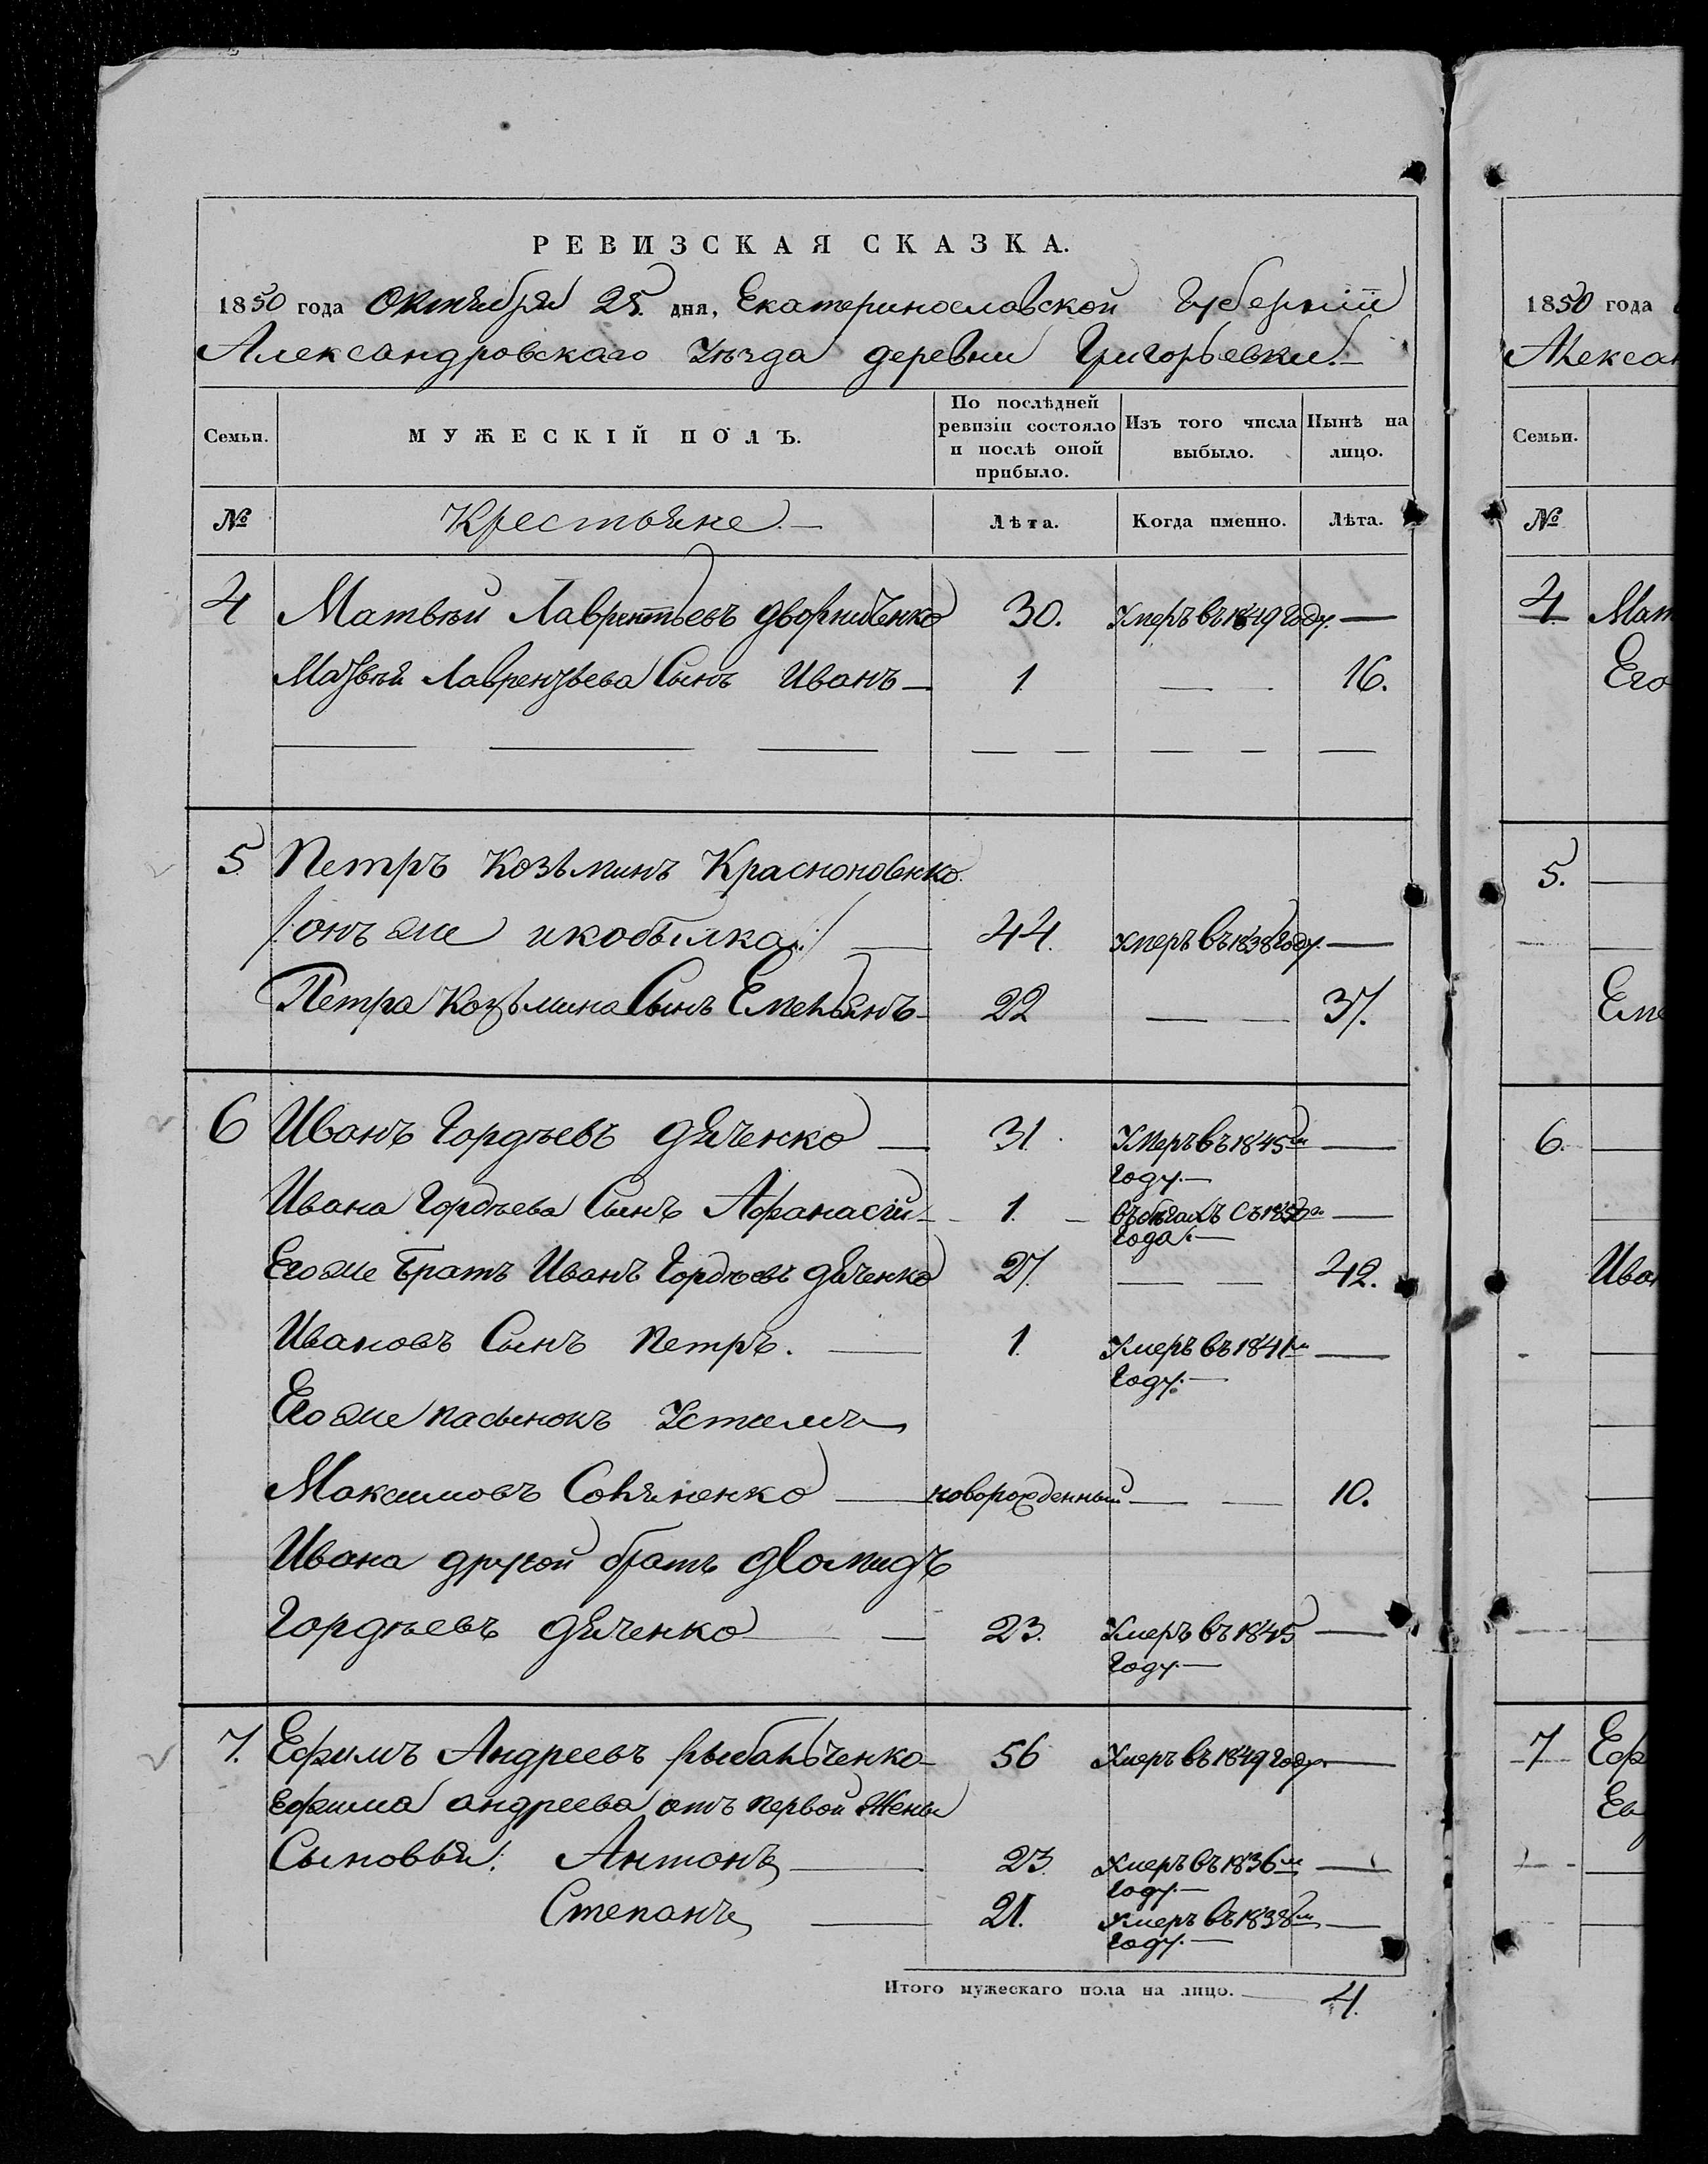 РЕВИЗСКАЯ СКАЗКА.
1850 года Октября 25. дня, Екатеринославской Губерніи
Александровскаго Уѣзда деревни Григорьевки.
Семьи.
МУЖЕСКІЙ ПОЛЪ.
По послѣдней ревизіи состояло и послѣ оной прибыло.
Изъ того числа выбыло.
Нынѣ на лицо.
№ Крестьяне. Лѣта. Когда именно. Лѣта.
4 Матвѣй Лаврентьевъ Дворниченко 30. Умеръ въ 1849 году. —
Матвѣя Лаврентьева Сынъ Иванъ — 1. — — 16.
5 Петръ Козьминъ Красноковенко
/:онъ же и кобылка:/ — 44. Умеръ въ 1838 году. —
Петра Козьмина Сынъ Емельянъ — 22 — — 37.
6 Иванъ Гордѣевъ Дяченко — 31. Умеръ въ 1845м
году. —
Ивана Гордѣева Сынъ Афанасій — 1. — въ бѣгахъ съ 1850
года. —
Его же Братъ Иванъ Гордѣевъ Дяченко 27. — — 42.
Ивановъ Сынъ Петръ. — 1. Умеръ въ 1841м
году. —
Его же пасынокъ Устимъ
Максимовъ — новорожденный — — 10.
Ивана другой братъ Діомидъ
Гордѣевъ Дяченко — 23. Умеръ въ 1845
году. —
7. Ефимъ Андреевъ Рыбальченко — 56 Умеръ въ 1849 году. —
Ефима Андреева отъ первой Жены
Сыновья: Антонъ — 23. Умеръ въ 1836м
году. —
Степанъ — 21. Умеръ въ 1838м
году. —
Итого мужескаго пола на лицо. — 4.
1850 года
Алексан
Семьи.
№
4. Мат
Его
5. —
Еме
6. —
Иван
7 Еф